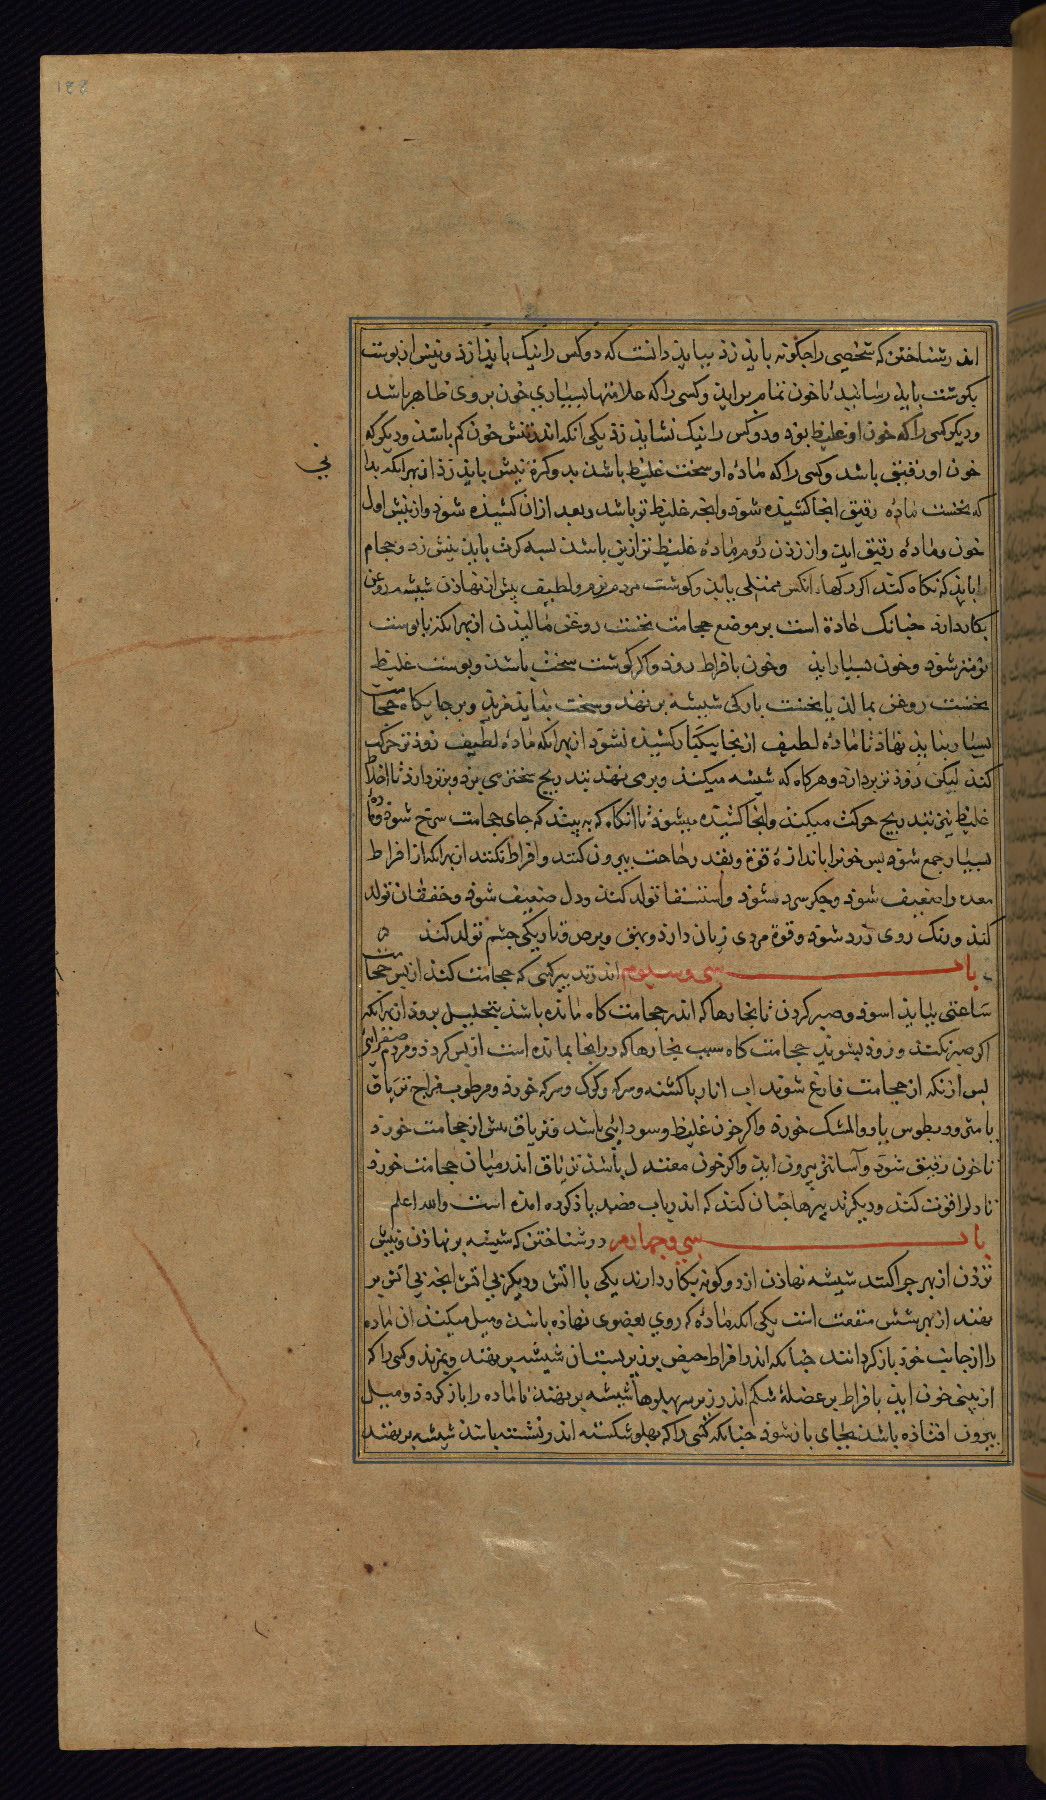 ۱۲۲
اندر شناختن که شخصی را چکونه باید زد بباید دانست که دو کس را نیک باید ازد و نیش از پوست
بکوشت باید رسانید تا خون تمام براید و کسی را که علامتها بسیاری خون بروی ظاهر باشد
و دیکر کسی را که خون او غلیظ بود و دو کس را نیک نشاید زد یکی انکه اندر تنش خون کم باشد و دیکر که
خون او رقیق باشد و کسی را که مادۀ او سخت غلیظ باشد بدو کرة نیش باید زد از بهر انکه بدا
نی
که نخست مادۀ رقیق انجا کشیده شود و انچه غلیظ تر باشد بعد ازان کشیده شود و از نیش اول
خون و مادۀ رقیق اید و از زدن دوم مادۀ غلیظ تر ازین باشد بسه کرت باید نیش زد و حجام
را باید که نکاه کند اکر رکها انکس ممتلی باید و کوشت مردم نرم و لطیف پیش از نهادن شیشه روغن
بکار دارد چنانک عادة است بر موضع حجامت نخست روغن مالیدن از بهر انکه تا پوست
نرمتر شود و خون بسیار اید و خون بافراط رود و اکر کوشت سخت باشد و پوست غلیظ
نخست روغن بمالد یا نخست بارکی شیشه بر نهد و سخت نباید مزید و بر جایکاه حجامت
بسیار بباید نهاد تا مادۀ لطیف از انجا بیکبار کشیده نشود از بهر انکه مادۀ لطیف زود تر حرکت
کند لیکن زود تر بردارد و هر کاه که شیشه میکند و برمی نهد بتدریج سختتر می مزد و برتر دارد تا اخلاط
غلیظ نیز بتدریج حرکت میکند و انجا کشیده میشود تا انکاه که به بیند که جای حجامت سرخ شود و مادۀ
بسیار جمع شود پس خونرا باندازۀ قوة و بقدر حاجت بیرون کند و افراط نکند از بهر انکه از افراط
معده را ضعیف شود و جکر سرد شود و استسقا تولد کند و دل ضعیف شود و خفقان تولد
کند و رنک روی زرد شود و قوة مردی زیان دارد و بهق و برص و تاریکی چشم تولد کند
باب سی و سیوم اندر تدبیر کسی که حجامت کند از پس حجامت
ساعتی بباید اسود و صبر کردن تا بخارها که اندر حجامت کاه مانده باشد بتحلیل برود از بهر انکه
اکر صبر نکند و زود بشوید حجامت کاه سبب بخارها که در انجا بمانده است ازپس کردد و مردم صفرائی
پس از انکه از حجامت فارغ شوند اب انار با کشنه و سرکه و کوک و سرکه خورد و مرطوب مزاج تریاق
یا مثرودیطوس یا دوالمشک خورد و اکر خون غلیظ و سودائی باشد و تریاق پیش از حجامت خورد
تا خون رقیق شود و اسانتر بیرون اید و اکر خون معتدل باشد تریاق اندر میان حجامت خورد
تا دلرا قوت کند و دیکر تدبیرها چنان کند که اندر باب فصد یاد کرده امده است والله اعلم
باب سی و چهارم در شناختن که شیشه بر نهادن و نیش
نزدن از بهر چرا کنند شیشه نهادن از دو کونه بکار دارند یکی با اتش و دیکر بی اتش انچه بی اتش بر
نهند از بهر شش منفعت است یکی انکه مادۀ که روی بعضوی نهاده باشد و میل میکند ان ماده
را از جانب خود باز کردانند چنانکه اندر افراط حیض بر زیر پستان شیشه بر نهند و بمزند و کسی را که
از بینی خون اید بافراط بر عضلۀ شکم اندر زیر پهلوها شیشه بر نهند تا ماده را باز کردد و میل
بیرون افتاده باشد بجای باز شود چنانکه کسی را که پهلو شکسته اندر نشسته باشد شیشه بر نهند